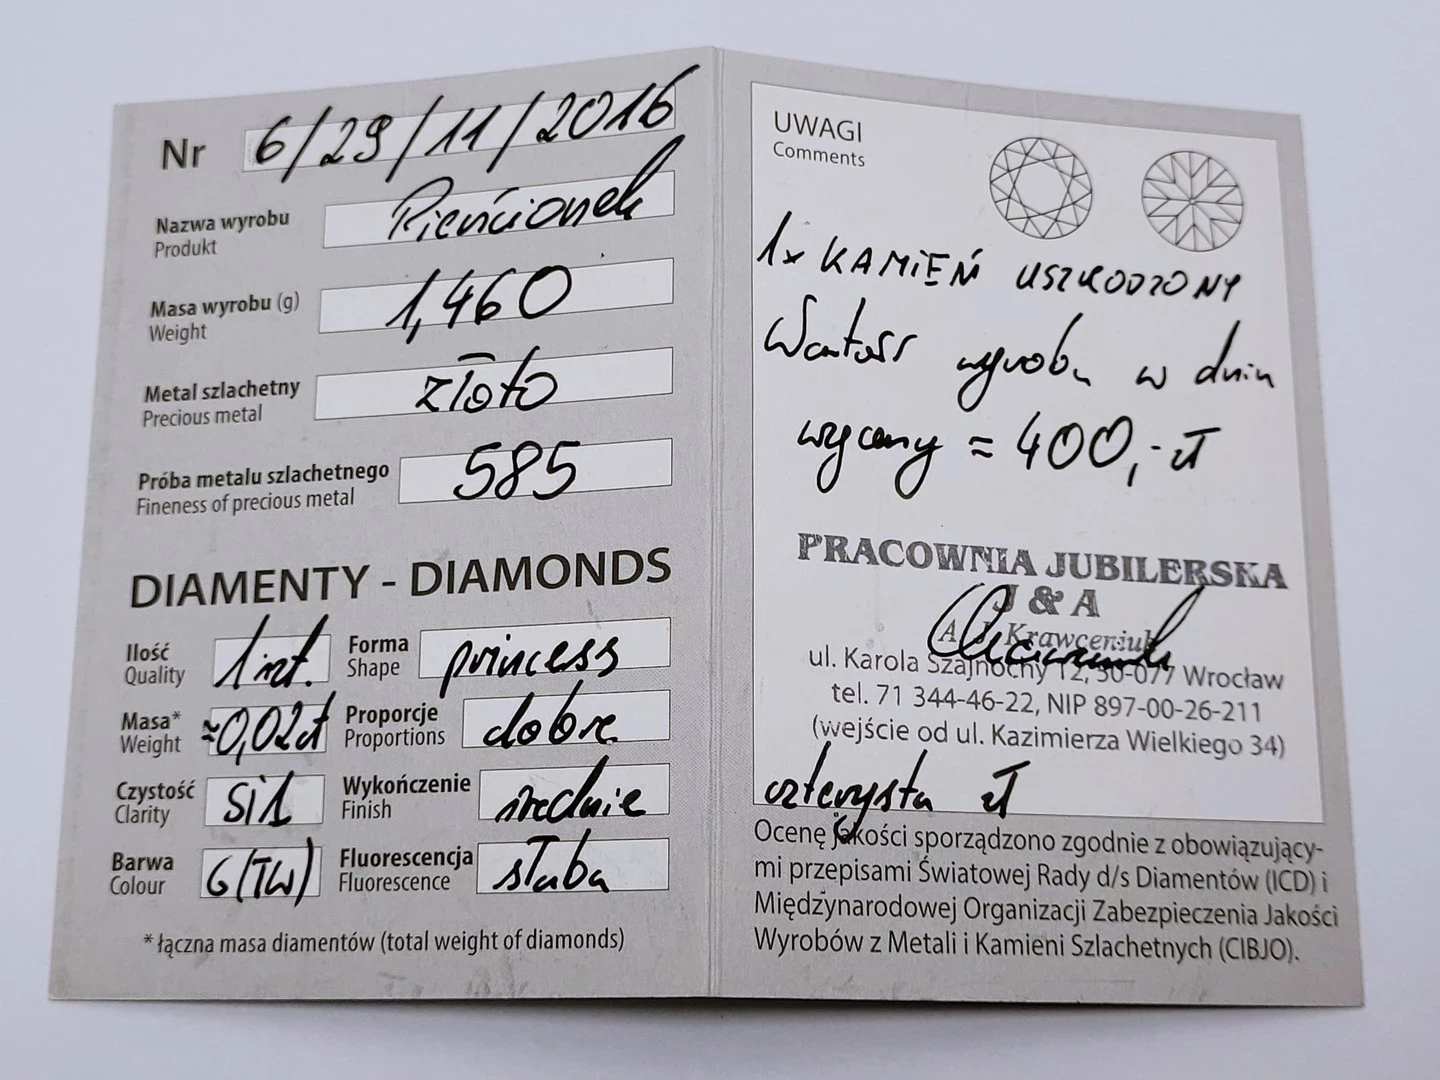 Nr 6/29/11/2016
Nazwa wyrobu Pierścionek
Produkt
Masa wyrobu (g) 1,460
Weight
Metal szlachetny złoto
Precious metal
Próba metalu szlachetnego 585
Fineness of precious metal
DIAMENTY - DIAMONDS
Ilość 1 szt. Forma princess
Quality Shape
Masa* ≈0,02ct Proporcje dobre
Weight Proportions
Czystość Si1 Wykończenie średnie
Clarity Finish
Barwa G(TW) Fluorescencja słaba
Colour Fluorescence
* łączna masa diamentów (total weight of diamonds)
UWAGI
Comments
1x KAMIEŃ USZKODZONY
Wartość wyrobu w dniu
wyceny ≈ 400,- zł
PRACOWNIA JUBILERSKA
J & A
A. J. Krawceniuk
ul. Karola Szajnochy 12, 50-077 Wrocław
tel. 71 344-46-22, NIP 897-00-26-211
(wejście od ul. Kazimierza Wielkiego 34)
czterysta zł
Ocenę jakości sporządzono zgodnie z obowiązujący-
mi przepisami Światowej Rady d/s Diamentów (ICD) i
Międzynarodowej Organizacji Zabezpieczenia Jakości
Wyrobów z Metali i Kamieni Szlachetnych (CIBJO).